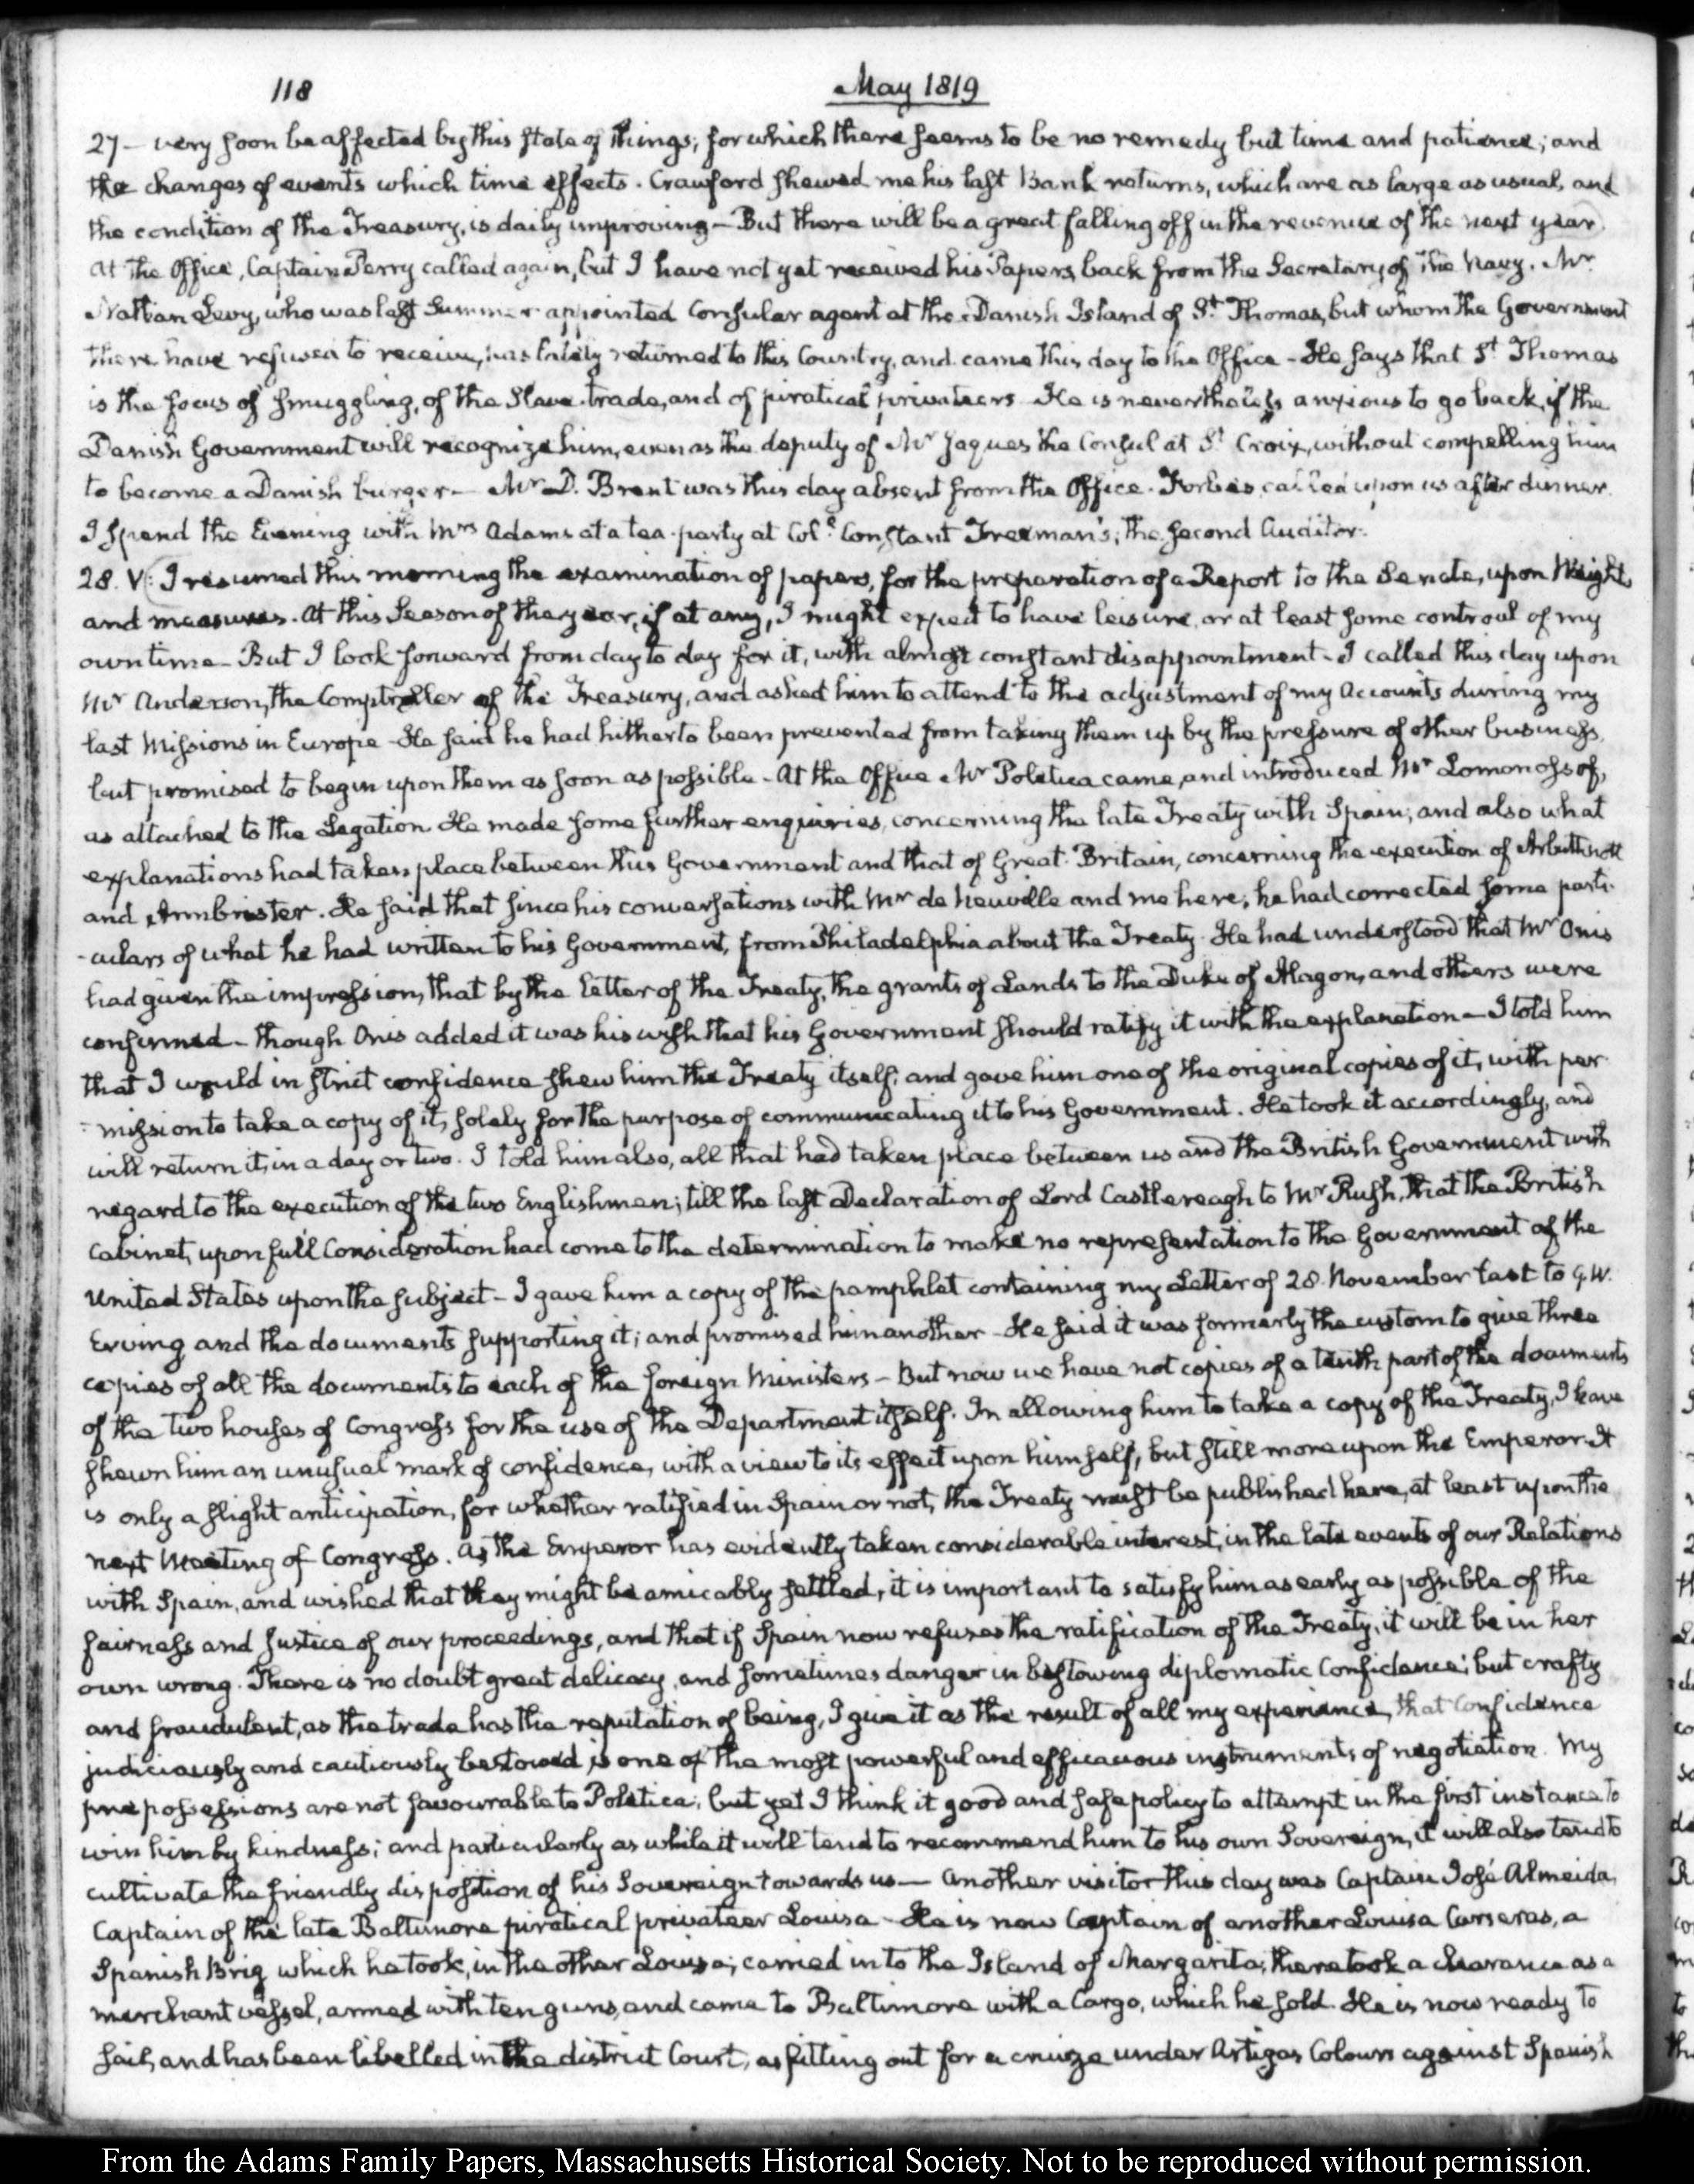 118
May 1819
27 — very soon be affected by this state of things; for which there seems to be no remedy but time and patience; and
the changes of events which time effects. Crawford shewed me his last Bank returns, which are as large as usual, and
the condition of the Treasury, is daily improving — But there will be a great falling off in the revenue of the next year.
At the Office, Captain Perry called again, but I have not yet received his Papers, back from the Secretary of the Navy. Mr.
Nathan Levy, who was last Summer appointed Consular agent at the Danish Island of St. Thomas, but whom the Government
there have refused to receive, has lately returned to this Country, and came this day to the Office — He says that St Thomas
is the focus of smuggling, of the Slave-trade, and of piratical privateers He is nevertheless anxious to go back, if the
Danish Government will recognize him, even as the deputy of Mr Jaques the Consul at St Croix, without compelling him
to become a Danish burger — Mr D. Brent was this day absent from the Office. Forbes called upon us after dinner.
I spend the Evening with Mrs Adams at a tea-party at Coll. Constant Freeman's; the second Auditor.
28. V: I resumed this morning the examination of papers, for the preparation of a Report to the Senate, upon Weights
and measures. At this Season of the year, if at any, I might expect to have leisure, or at least some controul of my
own time — But I look forward from day to day for it, with almost constant disappointment — I called this day upon
Mr Anderson, the Comptroller of the Treasury, and asked him to attend to the adjustment of my Accounts during my
last Missions in Europe — He said he had hitherto been prevented from taking them up by the pressure of other business,
but promised to begin upon them as soon as possible — At the Office Mr Poletica came, and introduced Mr Lomonossof,
as attached to the Legation. He made some further enquiries, concerning the late Treaty with Spain; and also what
explanations had taken place between this Government and that of Great-Britain, concerning the execution of Arbuthnott
and Armbrister. He said that since his conversations with Mr de Neuville and me here, he had corrected some parti-
-culars of what he had written to his Government, from Philadelphia about the Treaty. He had understood that Mr Onis
had given the impression, that by the letter of the Treaty, the grants of Lands to the Duke of Alagon, and others were
confirmed — though Onis added it was his wish that his Government should ratify it with the explanation — I told him
that I would in strict confidence shew him the Treaty itself; and gave him one of the original copies of it, with per-
-mission to take a copy of it, solely for the purpose of communicating it to his Government. He took it accordingly, and
will return it, in a day or two. I told him also, all that had taken place between us and the British Government with
regard to the execution of the two Englishmen; till the last Declaration of Lord Castlereagh to Mr Rush, that the British
Cabinet, upon full Consideration had come to the determination to make no representation to the Government of the
United States upon the subject — I gave him a copy of the pamphlet containing my Letter of 28. November last to G. W.
Erving and the documents supporting it; and promised him another — He said it was formerly the custom to give three
copies of all the documents to each of the foreign Ministers — But now we have not copies of a tenth part of the documents
of the two houses of Congress for the use of the Department itself. In allowing him to take a copy of the Treaty, I have
shewn him an unusual mark of confidence, with a view to its effect upon himself, but still more upon the Emperor. It
is only a slight anticipation, for whether ratified in Spain or not, the Treaty must be published here, at least upon the
next Meeting of Congress. As the Emperor has evidently taken considerable interest, in the late events of our Relations
with Spain, and wished that they might be amicably settled, it is important to satisfy him as early as possible of the
fairness and Justice of our proceedings, and that if Spain now refuses the ratification of the Treaty, it will be in her
own wrong. There is no doubt great delicacy, and sometimes danger in bestowing diplomatic Confidence; but crafty
and fraudulent, as the trade has the reputation of being, I give it as the result of all my experience, that Confidence
judiciously and cautiously bestowed, is one of the most powerful and efficacious instruments of negotiation. My
prepossessions are not favourable to Poletica; but yet I think it good and safe policy to attempt in the first instance to
win him by kindness; and particularly as while it will tend to recommend him to his own Sovereign, it will also tend to
cultivate the friendly disposition of his Sovereign towards us — Another visitor this day was Captain José Almeida,
Captain of the late Baltimore piratical privateer Louisa — He is now Captain of another Louisa Carseras, a
Spanish Brig which he took, in the other Louisa; carried in to the Island of Margarita; there took a clearance as a
merchant vessel, armed with ten guns, and came to Baltimore with a Cargo, which he sold. He is now ready to
sail, and has been libelled in the district Court, as fitting out for a cruize under Artigas Colours against Spanish
From the Adams Family Papers, Massachusetts Historical Society. Not to be reproduced without permission.